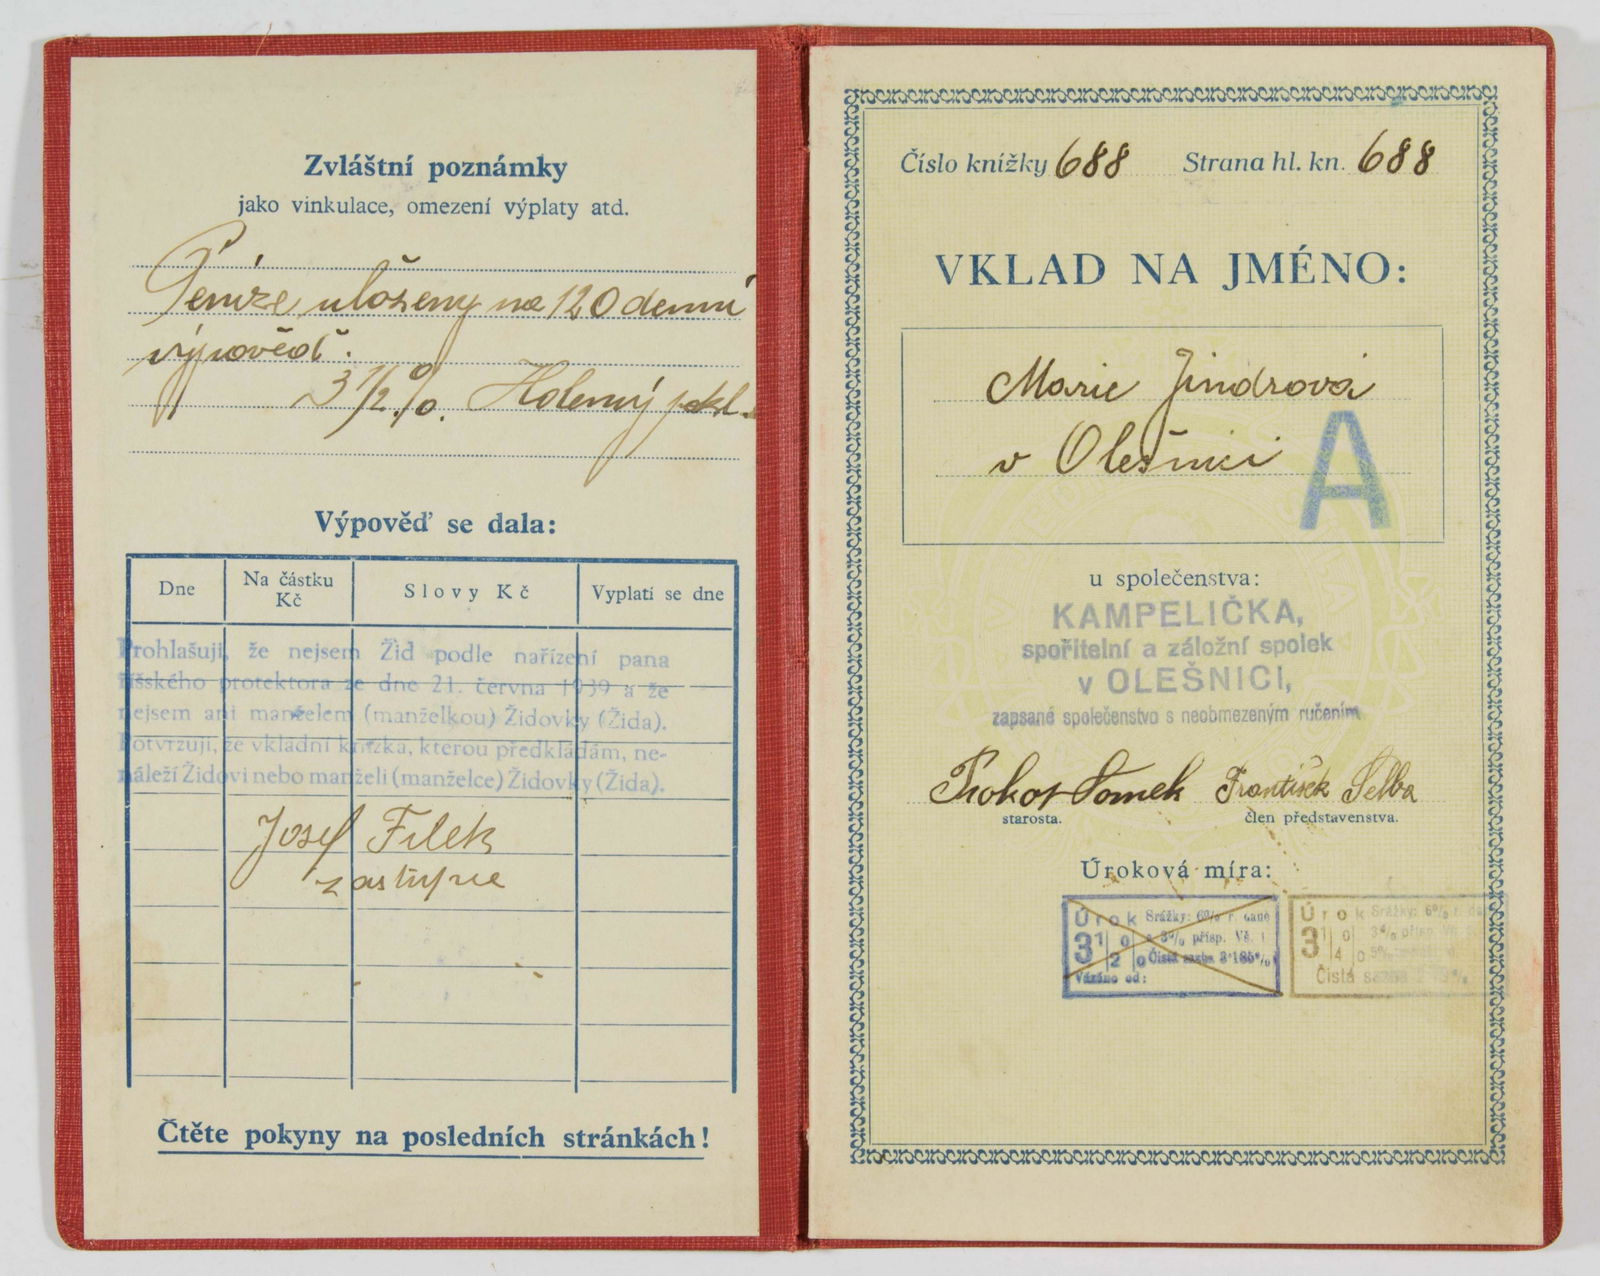 Zvláštní poznámky
jako vinkulace, omezení výplaty atd.
Peníze uloženy na 120 denní
výpověď.
3 1/2 %. Holemý pokl.
Výpověď se dala:
Dne
Na částku Kč
Slovy Kč
Vyplatí se dne
Prohlašuji, že nejsem Žid podle nařízení pana
říšského protektora ze dne 21. června 1939 a že
nejsem ani manželem (manželkou) Židovky (Žida).
Potvrzuji, že vkladní knížka, kterou předkládám, ne-
náleží Židovi nebo manželi (manželce) Židovky (Žida).
Josef Filek
zástupce
Čtěte pokyny na posledních stránkách!
Číslo knížky 688 Strana hl. kn. 688
VKLAD NA JMÉNO:
Marie Jindrová
v Olešnici
A
u společenstva:
KAMPELIČKA,
spořitelní a záložní spolek
v OLEŠNICI,
zapsané společenstvo s neobmezeným ručením
Prokop Tomek František Šelba
starosta. člen představenstva.
Úroková míra:
Úrok Srážky: 6% r. daně
3 1/2 % a 3% přísp. Vš. f.
Čistá sazba 3·185%
Vázáno od:
Úrok Srážky: 6% r. da
3 1/4 % 3% přísp.
5%
Čistá sazba